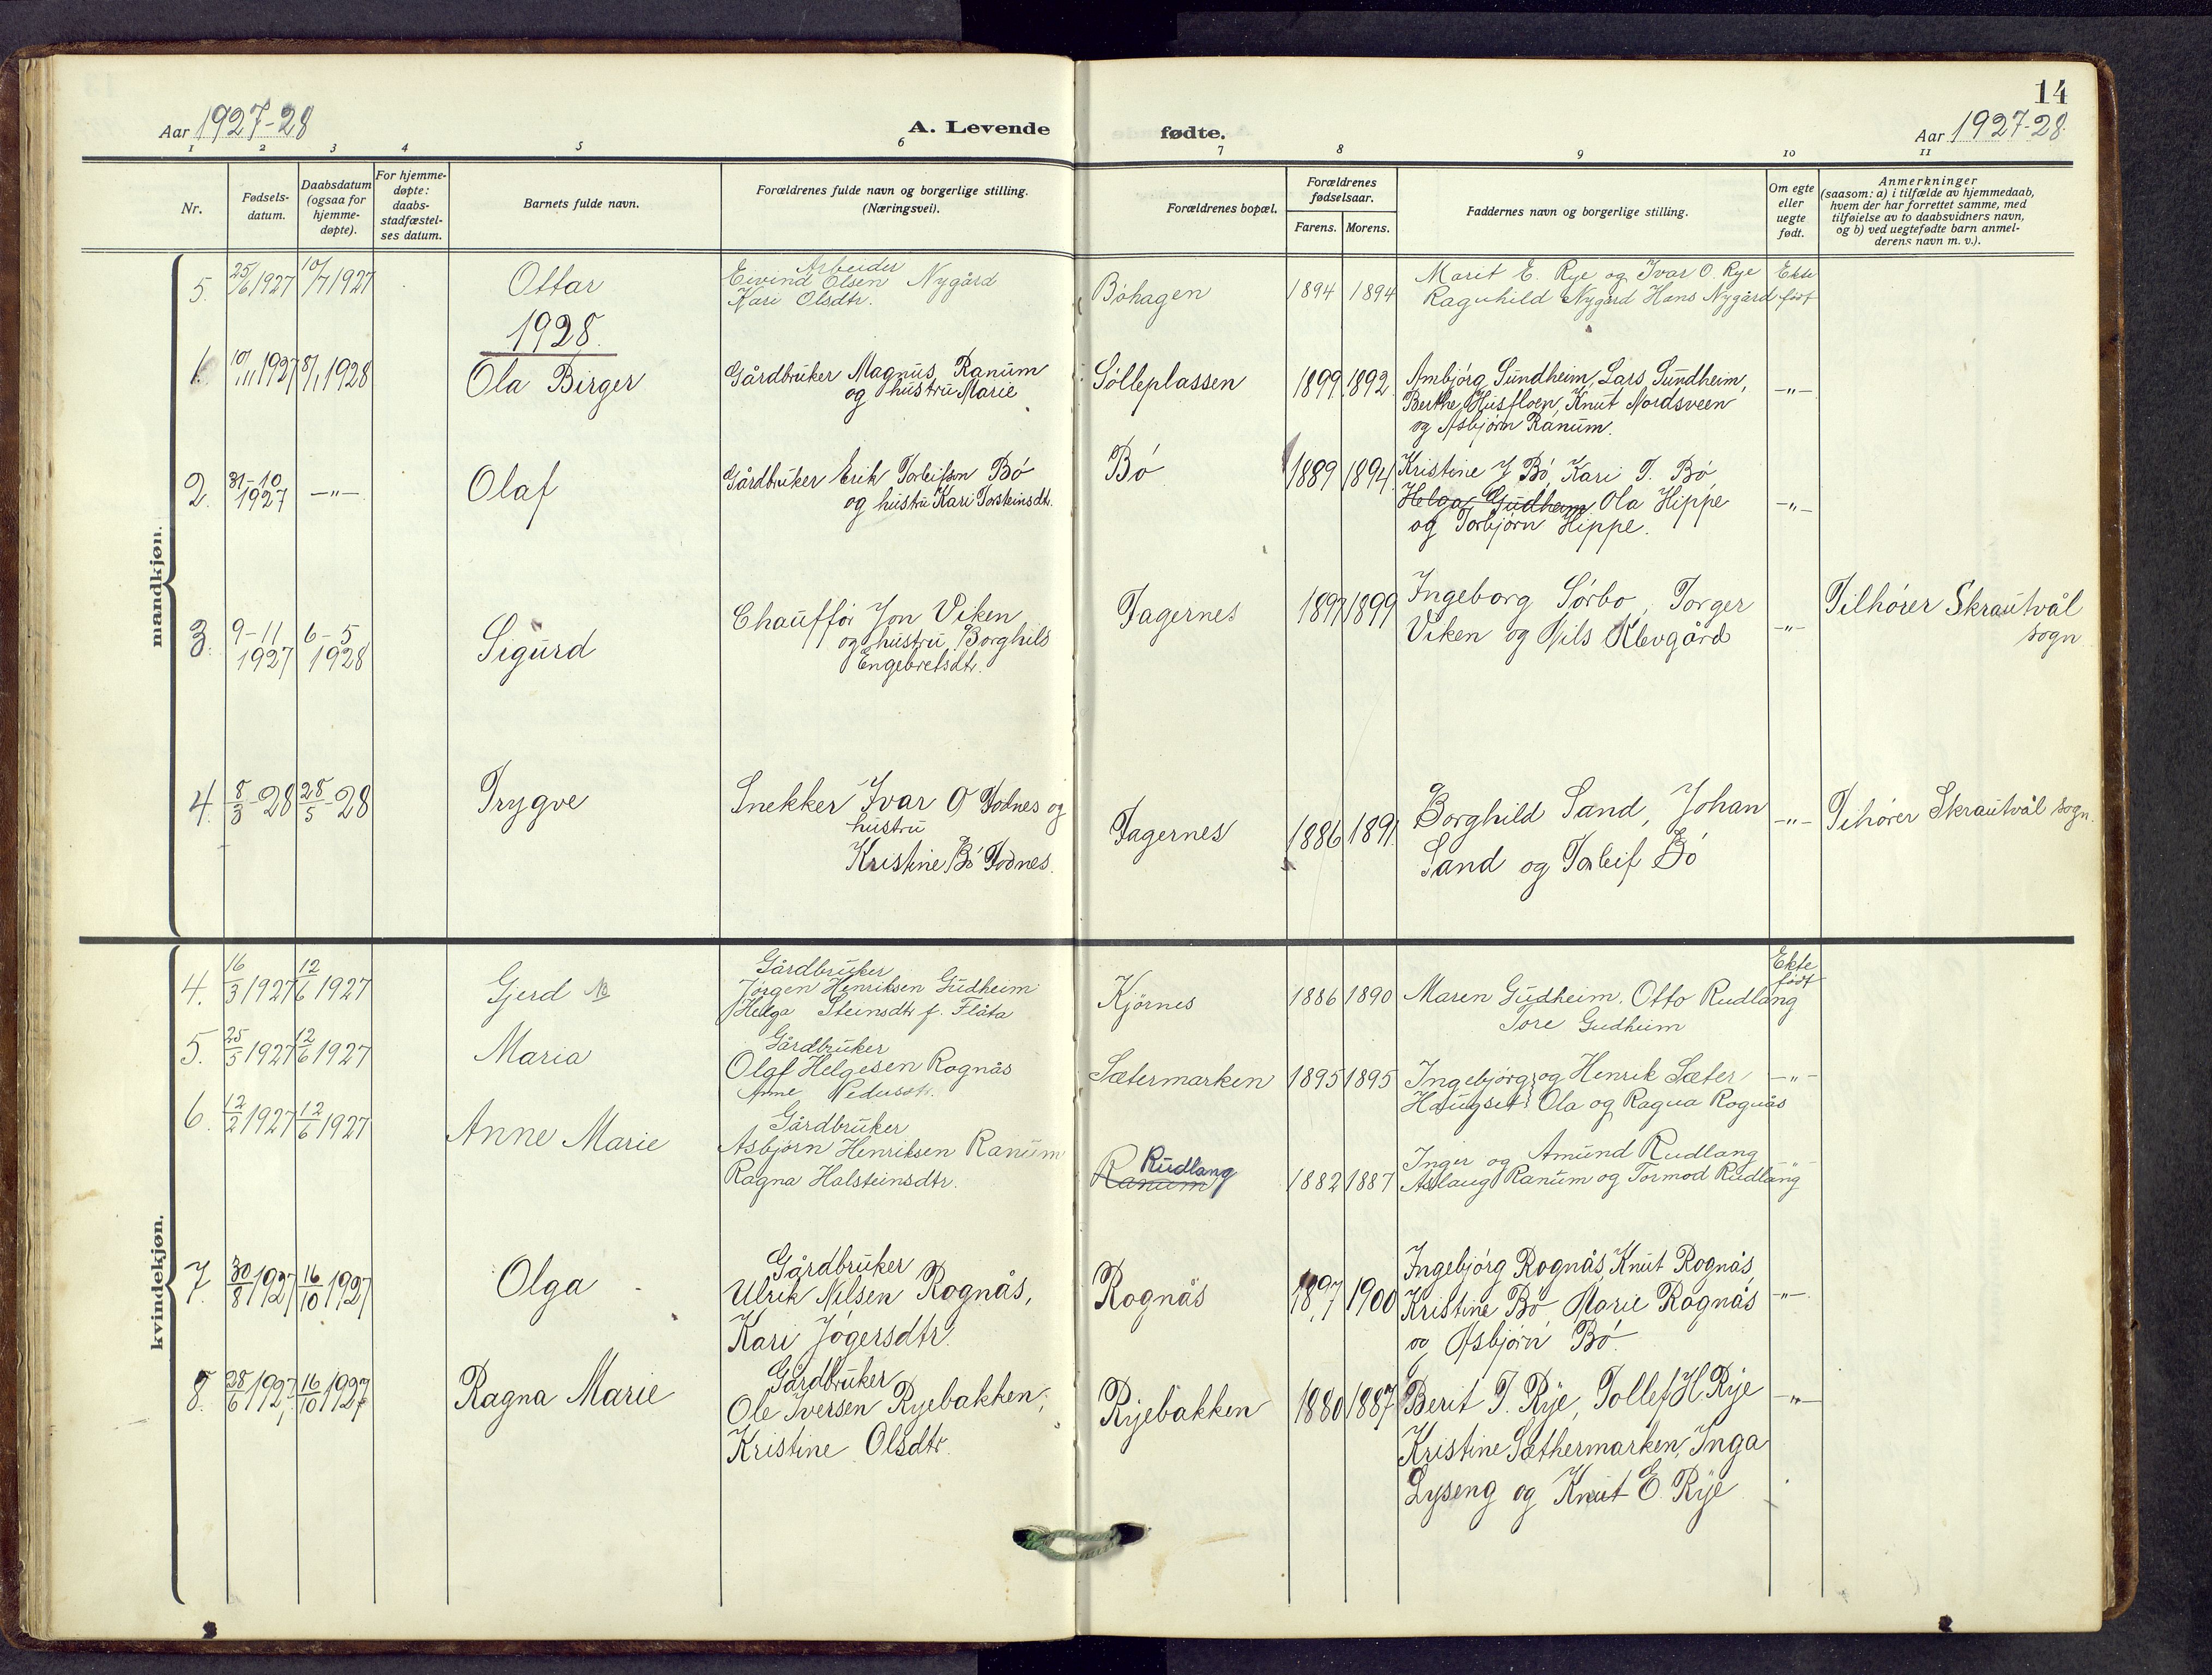 14
Aar 1927-28
A. Levende
fødte.
Aar 1927-28.
1 2 3 4 5 6 7 8 9 10 11
Nr.
Fødsels-
datum.
Daabsdatum
(ogsaa for
hjemme-
døpte).
For hjemme-
døpte:
daabs-
stadfæstel-
ses datum.
Barnets fulde navn.
Forældrenes fulde navn og borgerlige stilling.
(Næringsvei).
Forældrenes bopæl.
Forældrenes
fødselsaar.
Farens. Morens.
Faddernes navn og borgerlige stilling.
Om egte
eller
uegte
født.
Anmerkninger
(saasom: a) i tilfælde av hjemmedaab,
hvem der har forrettet samme, med
tilføielse av to daabsvidners navn,
og b) ved uegtefødte barn anmel-
derens navn m. v.).
mandkjøn.
5. 25/6 1927 10/7 1927
Ottar
Arbeider
Eivind Olsen Nygård
Kari Olsdtr.
Bøhagen
1894 1894
Marit E. Rye og Ivar O. Rye
Ragnhild Nygård Hans Nygård
Ekte
født
1928.
1. 10/11 1927 8/1 1928
Ola Birger
Gårdbruker Magnus Ranum
og hustru Marie
Sølleplassen
1899 1892
Ambjørg Sundheim, Lars Sundheim,
Berthe Husfloen, Knut Nordsveen
og Asbjørn Ranum.
-"-
2. 31-10
1927
-"-
Olaf
Gårdbruker Erik Torleifson Bø
og hustru Kari Torsteinsdtr.
Bø
1889 1894
Kristine J Bø, Kari T. Bø,
Helga Gudheim Ola Hippe
og Torbjørn Hippe.
-"-
3. 9-11
1927
6-5
1928
Sigurd
Chauffør Jon Viken
og hustru Borghild
Engebretsdtr.
Fagernes
1897 1899
Ingeborg Sørbo, Torger
Viken og Nils Klevgård
-"-
Tilhører Skrautvål
sogn
4. 8/3-28 28/5-28
Trygve
Snekker Ivar O Fodnes og
hustru
Kristine Bø Fodnes.
Fagernes
1886 1891.
Borghild Sand, Johan
Sand og Torleif Bø
-"-
Tihører Skrautvål sogn.
kvindekjøn.
4. 16/3 1927 12/6 1927
Gjerd
Gårdbruker
Jørgen Henriksen Gudheim
Helga Steinsdtr f. Flåta
Kjørnes
1886 1890
Maren Gudheim. Otto Rudlang
Tore Gudheim
Ekte
født
5. 25/5 1927 12/6 1927
Maria
Gårdbruker
Olaf Helgesen Rognås
Anne Pedersdtr.
Sætermarken
1895 1895
Ingebjørg og Henrik Sæter
Haugset Ola og Ragna Rognås
-"-
6. 12/2 1927 12/6 1927
Anne Marie
Gårdbruker
Asbjørn Henriksen Ranum
Ragna Halsteinsdtr.
Rudlang
Ranum
1882 1887
Inger og Amund Rudlang
Aslaug Ranum og Tormod Rudlang
-"-
7. 30/8 1927 16/10 1927
Olga
Gårdbruker
Ulrik Nilsen Rognås,
Kari Jøgersdtr.
Rognås
1897 1900
Ingebjørg Rognås, Knut Rognås,
Kristine Bø Marie Rognås
og Asbjørn Bø.
-"-
8. 28/6 1927 16/10 1927
Ragna Marie
Gårdbruker
Ole Iversen Ryebakken,
Kristine Olsdtr.
Ryebakken
1880 1887
Berit T. Rye, Tollef H. Rye
Kristine Sæthermarken, Inga
Lyseng og Knut E. Rye
-"-